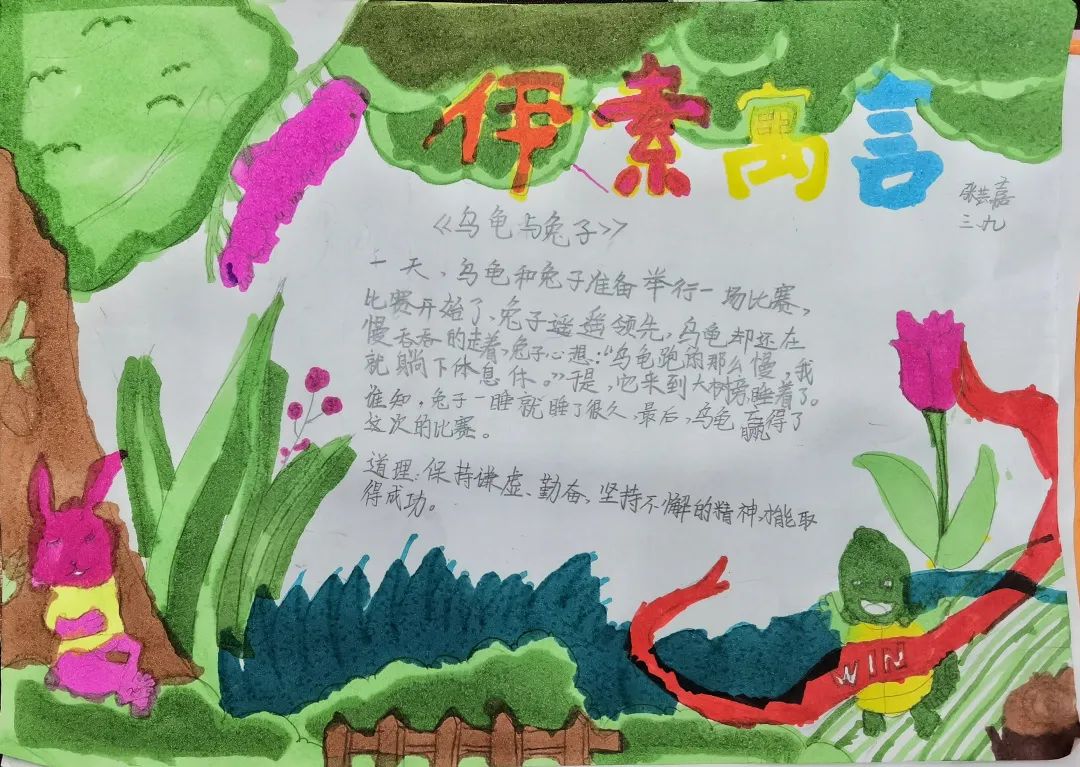 伊索寓言
张芸嘉
三.九
《乌龟与兔子》
一天，乌龟和兔子准备举行一场比赛，
比赛开始了，兔子遥遥领先，乌龟却还在
慢吞吞的走着，兔子心想：“乌龟跑的那么慢，我
就躺下休息休。”于是，它来到大树旁睡着了。
谁知，兔子一睡就睡了很久，最后，乌龟赢得了
这次的比赛。
道理：保持谦虚、勤奋，坚持不懈的精神，才能取
得成功。
WIN